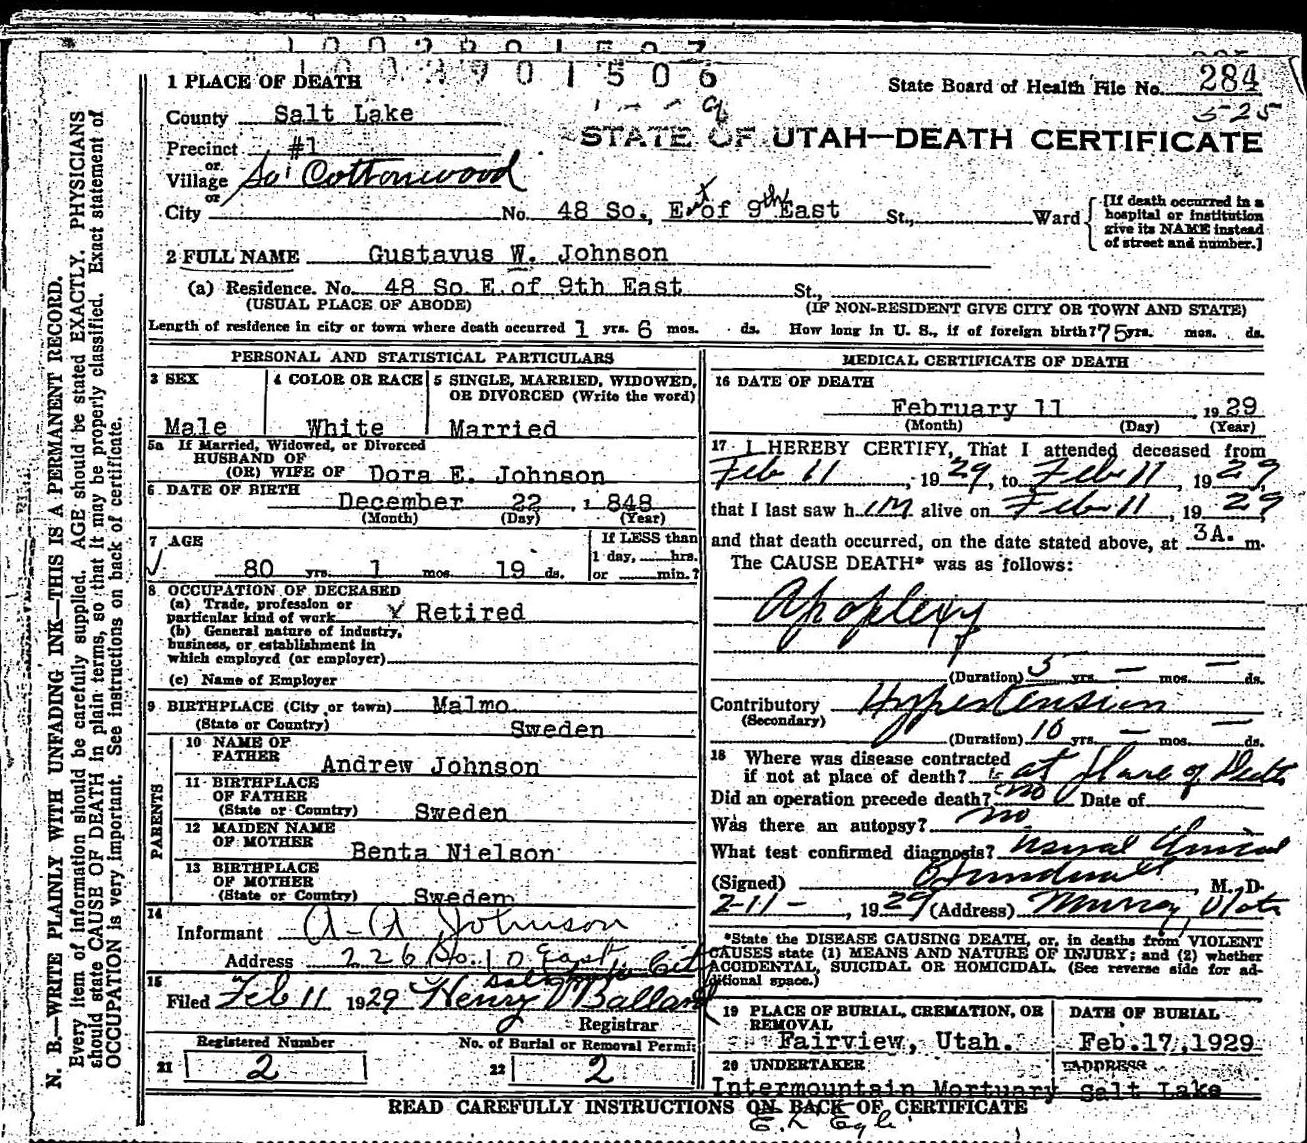 1002901506
1 PLACE OF DEATH
State Board of Health File No. 284
525
County Salt Lake
STATE OF UTAH—DEATH CERTIFICATE
Precinct #1
or
Village So Cottonwood
or
City No. 48 So., Ext of 9th East St., Ward
[If death occurred in a
hospital or institution
give its NAME instead
of street and number.]
2 FULL NAME Gustavus W. Johnson
(a) Residence. No. 48 So E of 9th East St.,
(USUAL PLACE OF ABODE) (IF NON-RESIDENT GIVE CITY OR TOWN AND STATE)
Length of residence in city or town where death occurred 1 yrs. 6 mos. ds. How long in U. S., if of foreign birth? 75 yrs. mos. ds.
PERSONAL AND STATISTICAL PARTICULARS
3 SEX 4 COLOR OR RACE 5 SINGLE, MARRIED, WIDOWED,
OR DIVORCED (Write the word)
Male White Married
5a If Married, Widowed, or Divorced
HUSBAND OF
(OR) WIFE OF Dora E. Johnson
6 DATE OF BIRTH
December 22, 1848
(Month) (Day) (Year)
7 AGE If LESS than
1 day, hrs.
80 yrs. 1 mos 19 ds. or min.?
8 OCCUPATION OF DECEASED
(a) Trade, profession or
particular kind of work Retired
(b) General nature of industry,
business, or establishment in
which employed (or employer)
(c) Name of Employer
9 BIRTHPLACE (City or town) Malmo
(State or Country) Sweden
PARENTS
10 NAME OF
FATHER Andrew Johnson
11 BIRTHPLACE
OF FATHER
(State or Country) Sweden
12 MAIDEN NAME
OF MOTHER Benta Nielson
13 BIRTHPLACE
OF MOTHER
(State or Country) Sweden
14
Informant A-A Johnson
Address 226 So. 10 East,
Salt Lake City
15
Filed Feb 11 1929 Henry Ballard
Registrar
Registered Number No. of Burial or Removal Permit
21 2 22 2
MEDICAL CERTIFICATE OF DEATH
16 DATE OF DEATH
February 11, 1929
(Month) (Day) (Year)
17 I HEREBY CERTIFY, That I attended deceased from
Feb 11, 1929, to Feb 11, 1929,
that I last saw him alive on Feb 11, 1929
and that death occurred, on the date stated above, at 3A. m.
The CAUSE DEATH* was as follows:
Apoplexy
(Duration) 5 yrs. — mos. — ds.
Contributory Hypertension
(Secondary)
(Duration) 10 yrs. — mos. — ds.
18 Where was disease contracted
if not at place of death? at place of Death
Did an operation precede death? no Date of
Was there an autopsy? no
What test confirmed diagnosis? usual Clinical
(Signed) , M. D.
2-11-, 1929 (Address) Murray, Utah
*State the DISEASE CAUSING DEATH, or, in deaths from VIOLENT
CAUSES state (1) MEANS AND NATURE OF INJURY; and (2) whether
ACCIDENTAL, SUICIDAL OR HOMICIDAL. (See reverse side for ad-
ditional space.)
19 PLACE OF BURIAL, CREMATION, OR
REMOVAL
Fairview, Utah.
DATE OF BURIAL
Feb. 17, 1929
20 UNDERTAKER ADDRESS
Intermountain Mortuary Salt Lake
READ CAREFULLY INSTRUCTIONS ON BACK OF CERTIFICATE
N. B.—WRITE PLAINLY WITH UNFADING INK—THIS IS A PERMANENT RECORD.
Every item of information should be carefully supplied. AGE should be stated EXACTLY. PHYSICIANS
should state CAUSE OF DEATH in plain terms, so that it may be properly classified. Exact statement of
OCCUPATION is very important. See instructions on back of certificate.